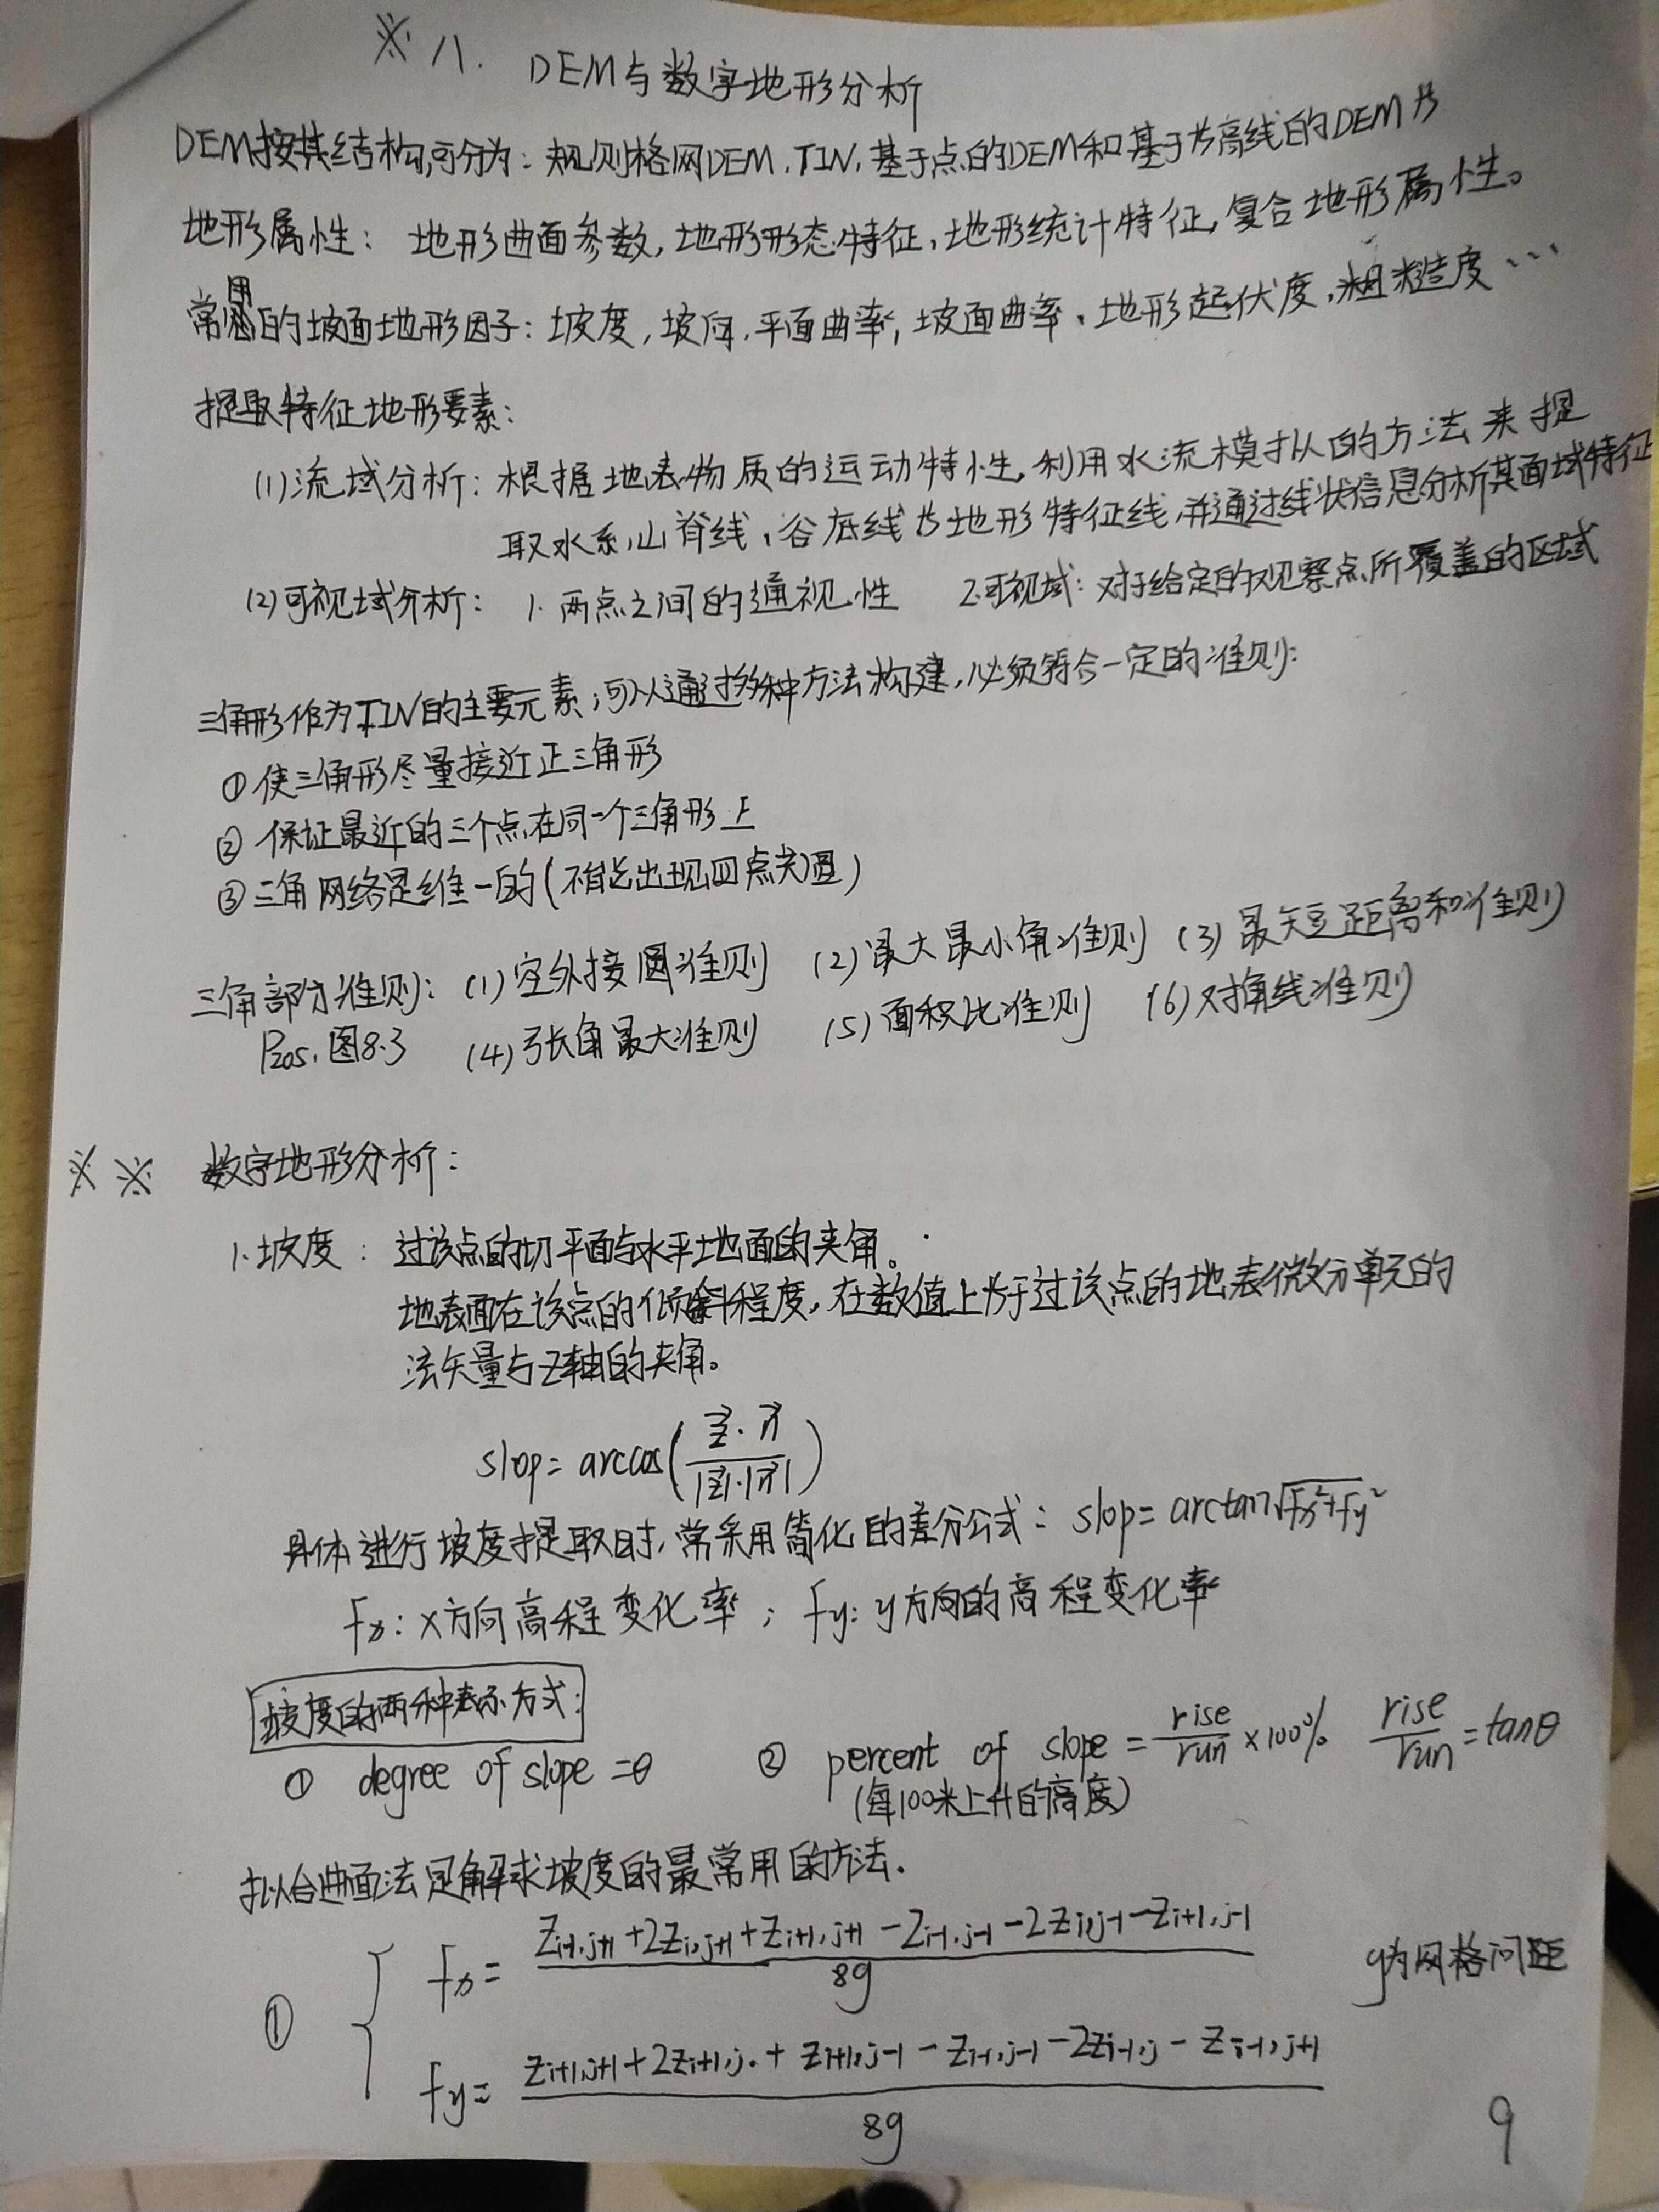 ※ 八. DEM与数字地形分析
DEM按其结构,可分为: 规则格网DEM, TIN, 基于点的DEM和基于等高线的DEM等
地形属性: 地形曲面参数, 地形形态特征, 地形统计特征, 复合地形属性。
常用的坡面地形因子: 坡度, 坡向, 平面曲率, 坡面曲率, 地形起伏度, 粗糙度…
提取特征地形要素:
(1)流域分析: 根据地表物质的运动特性, 利用水流模拟的方法来提
取水系, 山脊线, 谷底线等地形特征线, 并通过线状信息分析其面域特征
(2)可视域分析: 1. 两点之间的通视性 2.可视域: 对于给定的观察点所覆盖的区域
三角形作为TIN的主要元素, 可以通过多种方法构建, 必须符合一定的准则:
① 使三角形尽量接近正三角形
② 保证最近的三个点在同一个三角形上
③ 三角网络是维一的(不能出现四点共圆)
三角部分准则: (1) 空外接圆准则 (2) 最大最小角准则 (3) 最短距离和准则
P205, 图8.3 (4) 张角最大准则 (5) 面积比准则 (6) 对角线准则
※ ※ 数字地形分析:
1. 坡度: 过该点的切平面与水平地面的夹角。
地表面在该点的倾斜程度, 在数值上等于过该点的地表微分单元的
法矢量与Z轴的夹角。
slop = arccos( z⃗·n⃗ / |z⃗|·|n⃗| )
具体进行坡度提取时, 常采用简化的差分公式: slop = arctan√(fx²+fy²)
fx: x方向高程变化率; fy: y方向的高程变化率
坡度的两种表示方式:
① degree of slope = θ ② percent of slope = rise/run ×100% rise/run = tanθ
(每100米上升的高度)
拟合曲面法是解求坡度的最常用的方法.
① { fx = (Zi-1,j+1 + 2Zi,j+1 + Zi+1,j+1 - Zi-1,j-1 - 2Zi,j-1 - Zi+1,j-1) / 8g g为网格间距
fy = (Zi+1,j+1 + 2Zi+1,j + Zi+1,j-1 - Zi-1,j-1 - 2Zi-1,j - Zi-1,j+1) / 8g
9